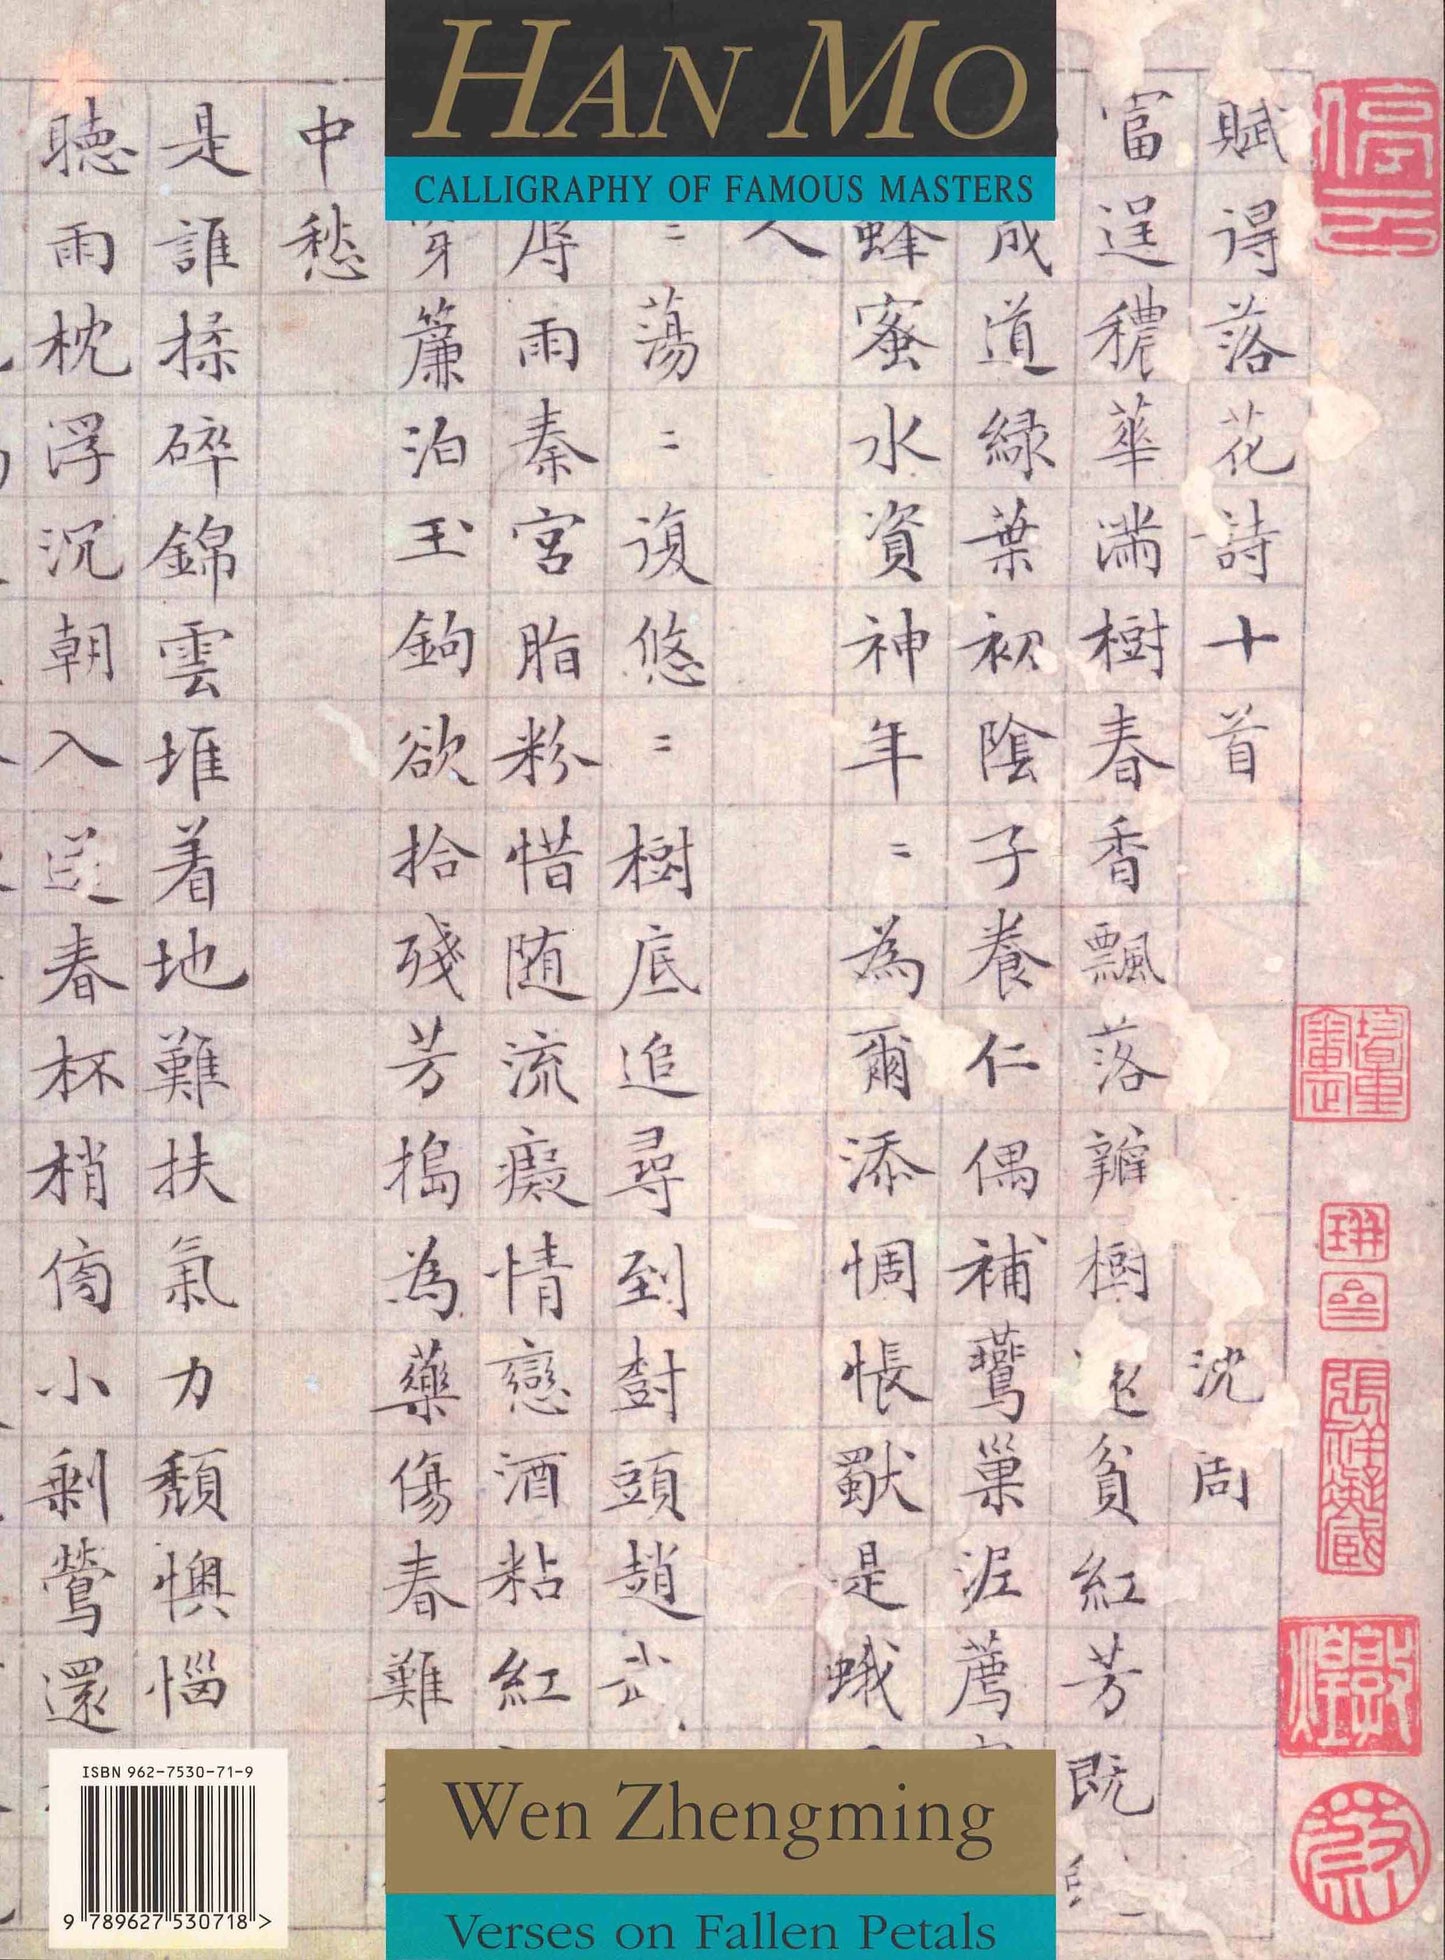 HAN MO
CALLIGRAPHY OF FAMOUS MASTERS
賦得落花詩十首 沈周
富逞穠華滿樹春香飄落瓣樹貧紅芳既
成道綠葉初陰子養仁偶補鷰巢泥薦
蜂蜜水資神年〻為爾添惆悵獸是蛾
人
〻蕩〻復悠〻樹底追尋到樹頭趙武
辱雨秦宮脂粉惜随流癡情戀酒粘紅
穿簾泊玉鉤欲拾殘芳搗為藥傷春難
中愁
是誰揉碎錦雲堆着地難扶氣力頹懊惱
聽雨枕浮沉朝入送春杯梢傍小剩鶯還
ISBN 962-7530-71-9
9 789627 530718 >
Wen Zhengming
Verses on Fallen Petals